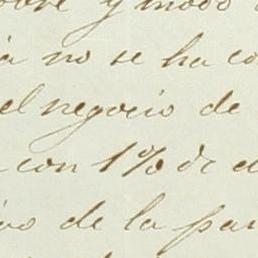 y modo
no se ha co
el negocio de
con 1% de d
de la par